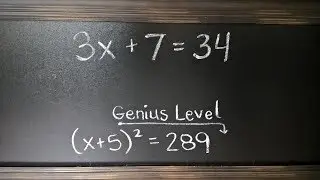 3x + 7 = 34
Genius Level
(x+5)² = 289